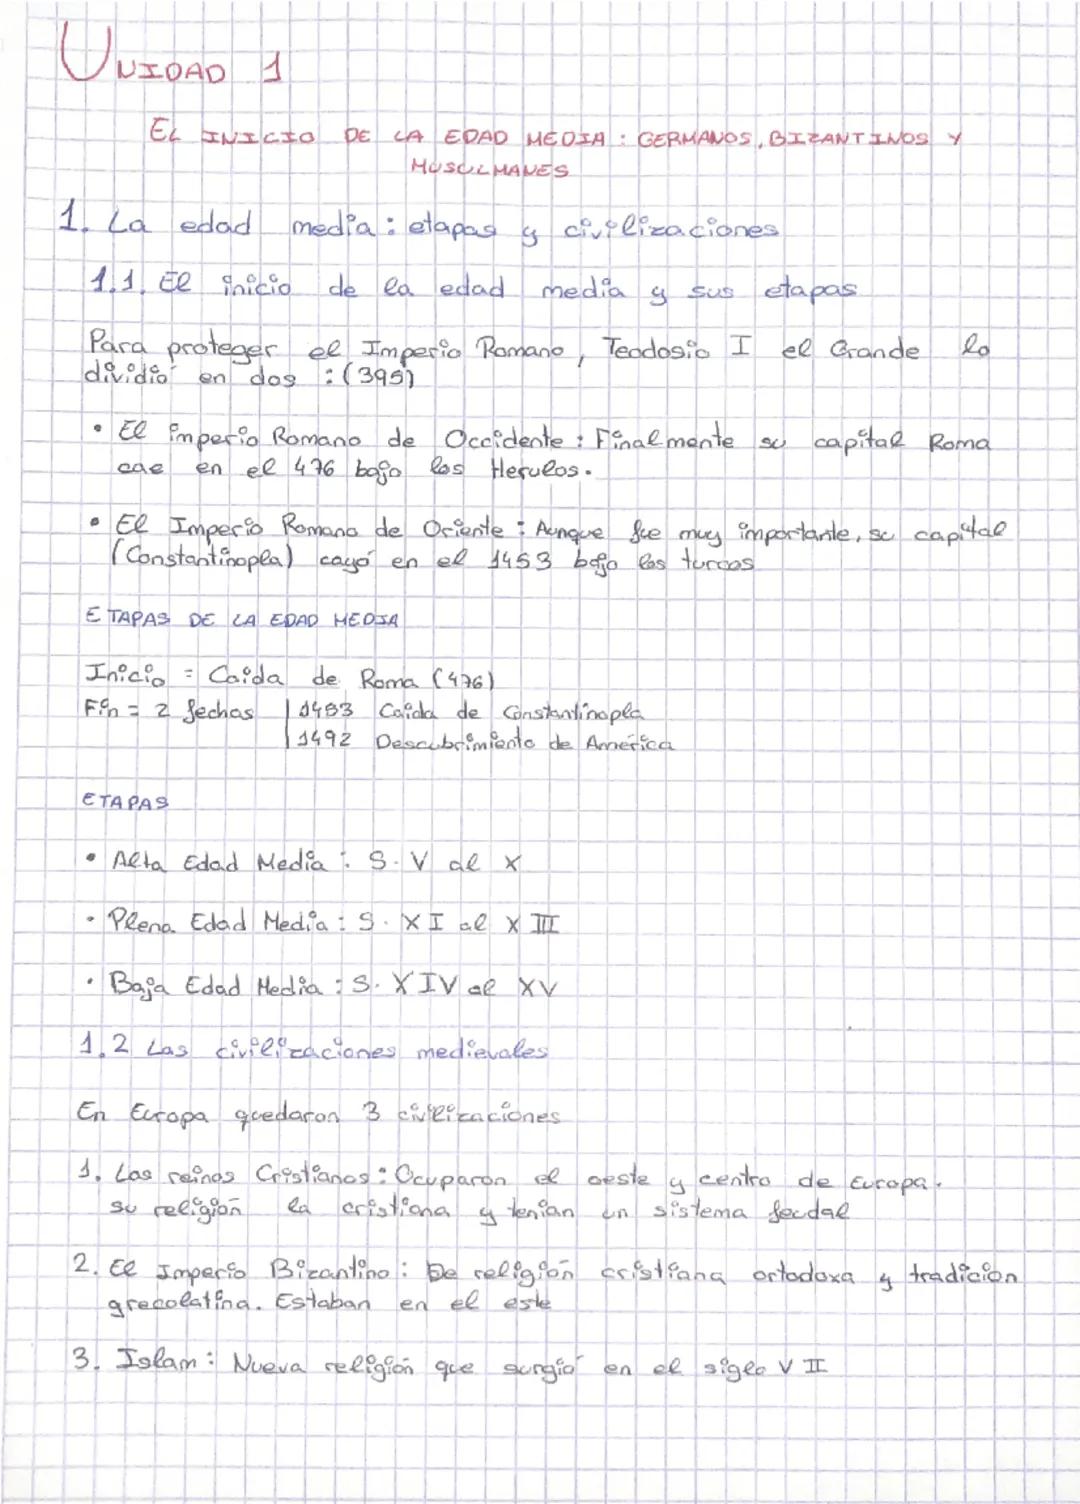 UNIDAD 1
EL INICIO DE LA EDAD MEDIA : GERMANOS, BIZANTINOS Y
MUSULMANES
1. La edad media : etapas y civilizaciones
1.1. El inicio de la edad media y sus etapas
Para proteger el Imperio Romano, Teodosio I el Grande lo
dividió en dos : (395)
• El imperio Romano de Occidente : Finalmente su capital Roma
cae en el 476 bajo los Herulos.
• El Imperio Romano de Oriente : Aunque fue muy importante, su capital
(Constantinopla) cayó en el 1453 bajo los turcos
ETAPAS DE LA EDAD MEDIA
Inicio = Caida de Roma (476)
Fin = 2 fechas | 1453 Caida de Constantinopla
| 1492 Descubrimiento de América
ETAPAS
• Alta Edad Media : S. V al X
• Plena Edad Media : S. XI al XIII
• Baja Edad Media : S. XIV al XV
1.2 Las civilizaciones medievales
En Europa quedaron 3 civilizaciones
1. Los reinos Cristianos : Ocuparon el oeste y centro de Europa.
su religión la cristiana y tenian un sistema feudal
2. El Imperio Bizantino : De religión cristiana ortodoxa y tradición
grecolatina. Estaban en el este
3. Islam : Nueva religión que surgió en el siglo VII